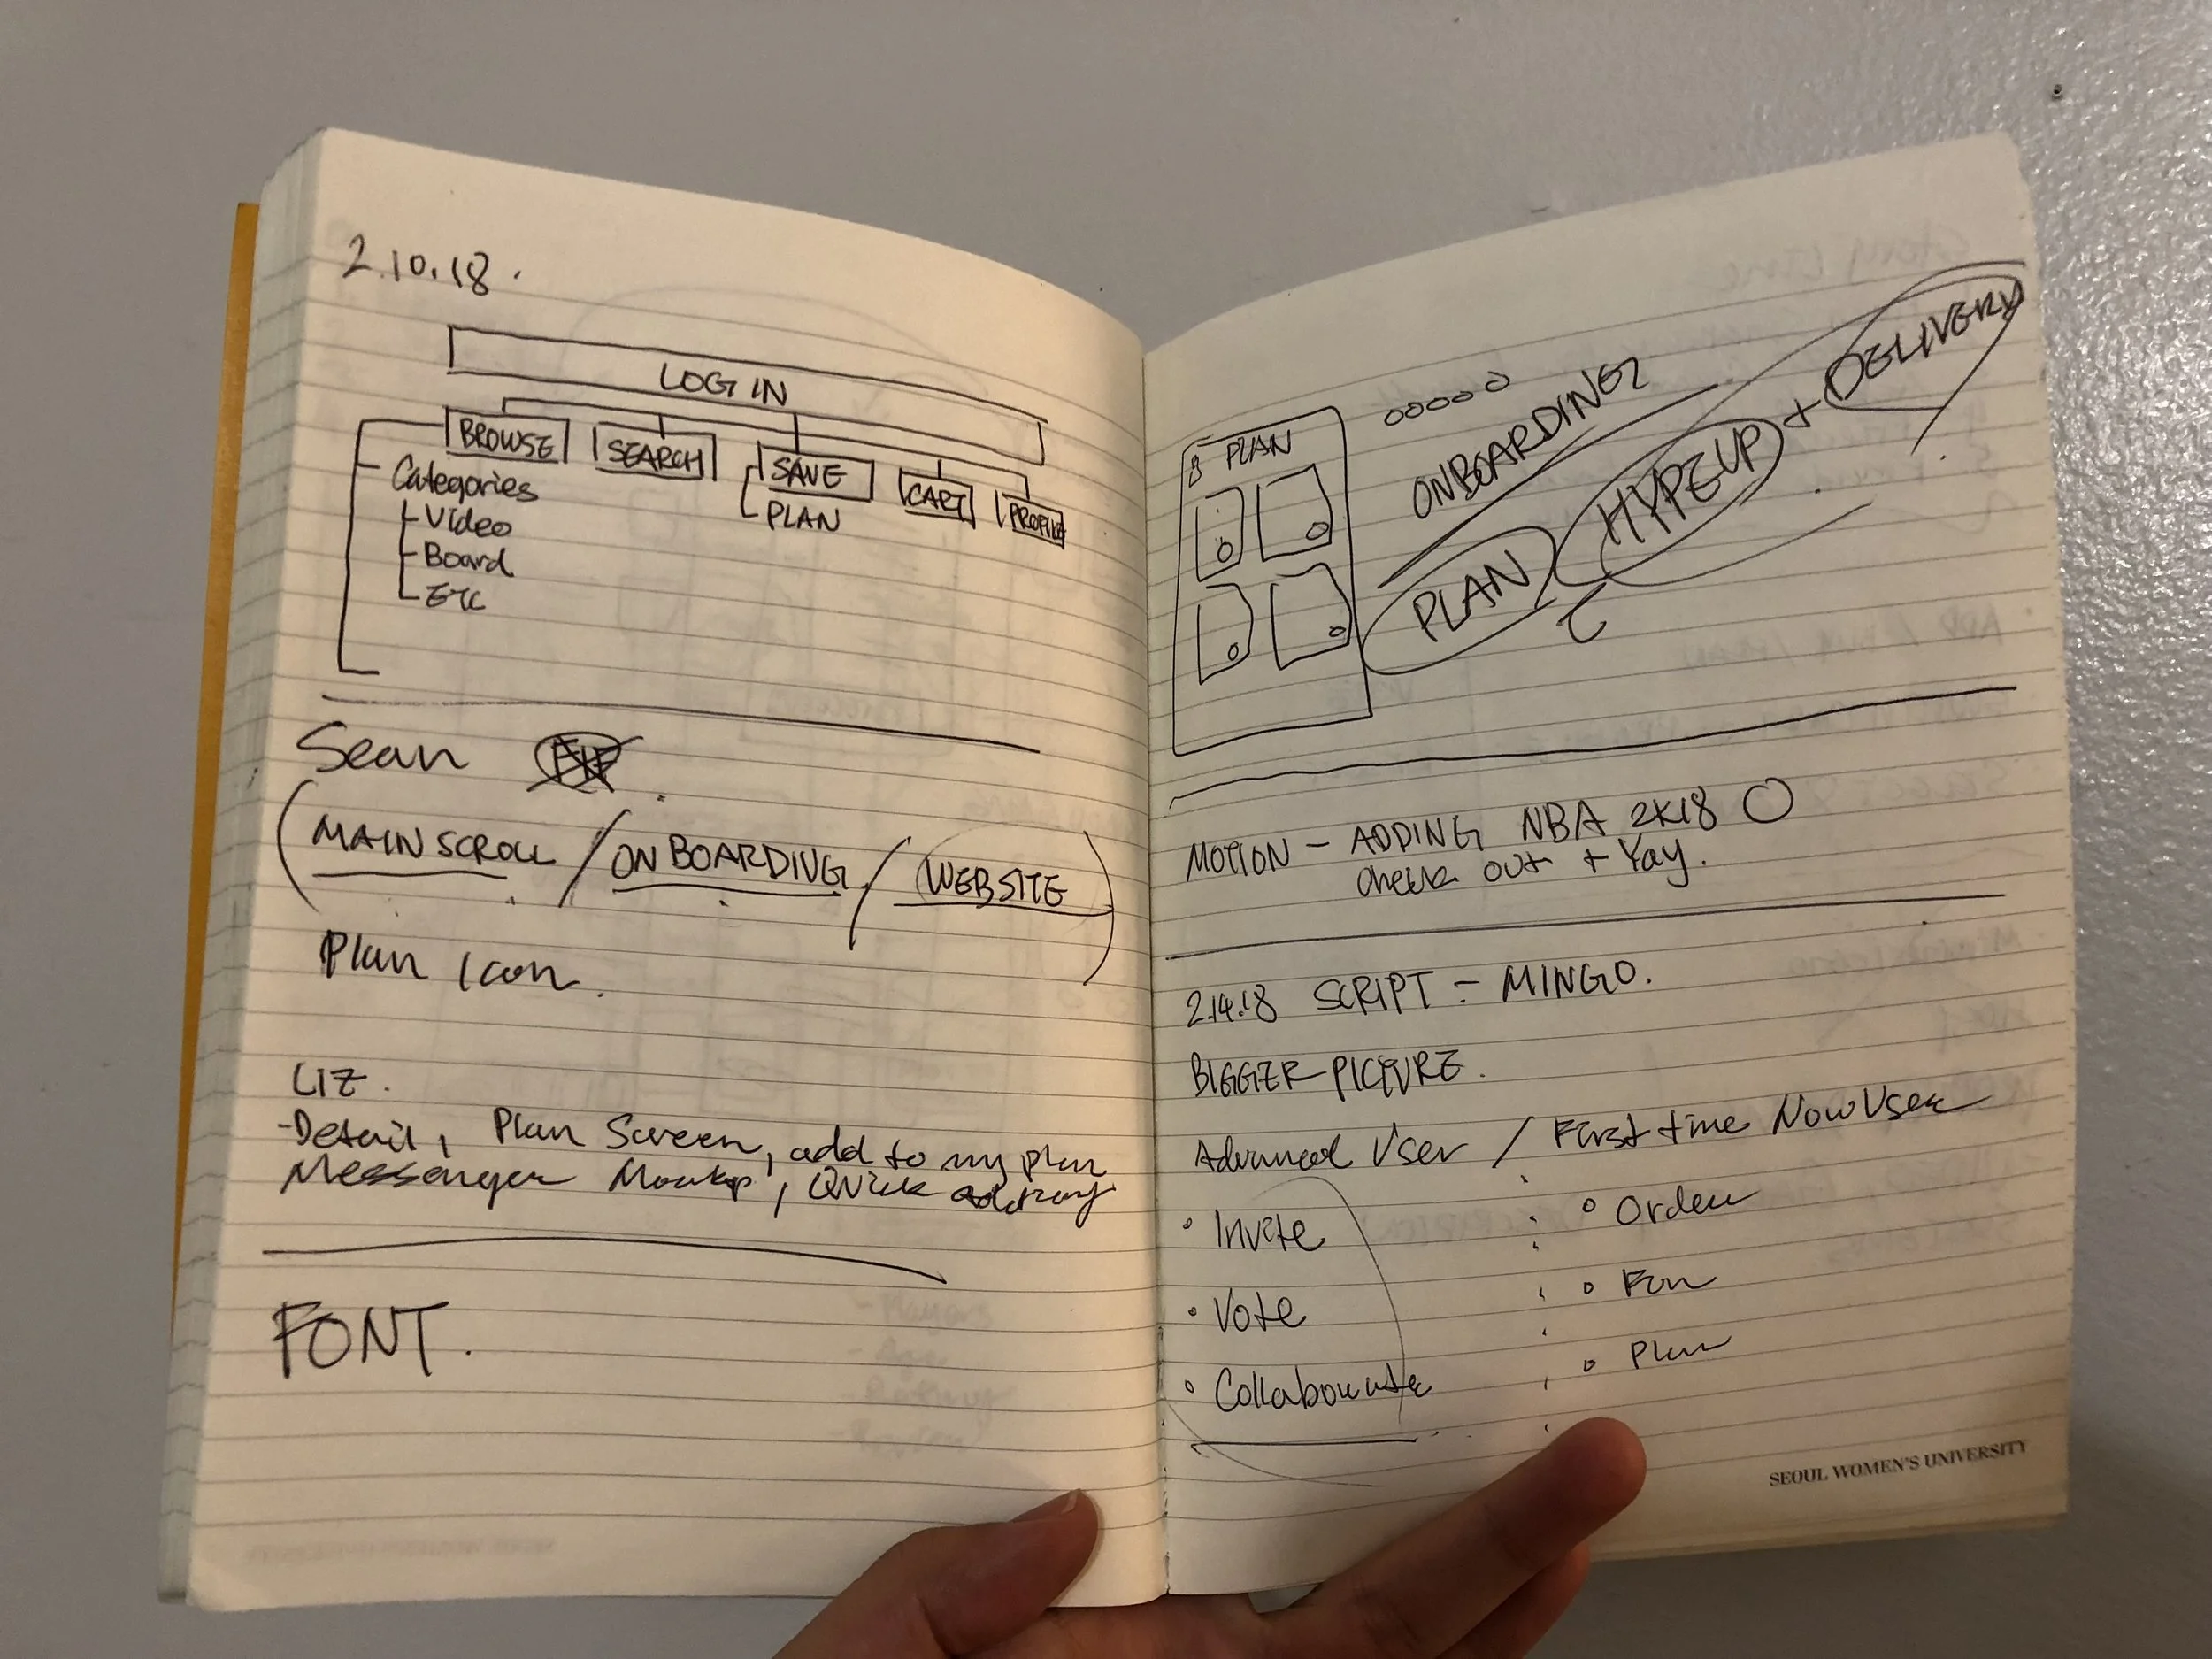 2.10.18.
LOG IN
BROWSE SEARCH SAVE CART PROFILE
Categories
PLAN
Video
Board
ETC
Sean
(MAIN SCROLL / ONBOARDING / WEBSITE)
Plan Icon.
LIZ.
-Detail, Plan Screen, add to my plan
Messenger Mockup, Quick adding
FONT.
PLAN
ONBOARDING
PLAN HYPEUP + DELIVERY
MOTION - ADDING NBA 2K18
Check out + Yay.
2.14.18 SCRIPT - MINGO.
BIGGER PICTURE.
Advanced User / First time Now User
• Invite
• Order
• Vote
• Fun
• Collaborate
• Plan
SEOUL WOMEN'S UNIVERSITY